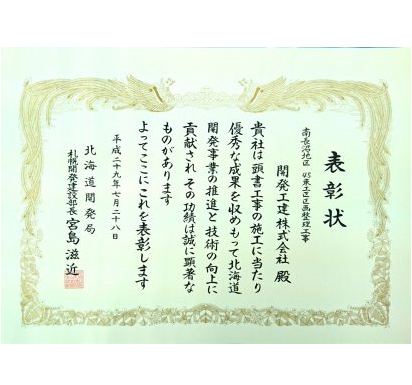 表彰状
南長沼地区 45東工区区画整理工事
開発工建株式会社 殿
貴社は頭書工事の施工に当たり
優秀な成果を収めもって北海道
開発事業の推進と技術の向上に
貢献され その功績は誠に顕著な
ものがあります
よってここにこれを表彰します
平成二十九年七月二十八日
北海道開発局
札幌開発建設部長 宮島滋近